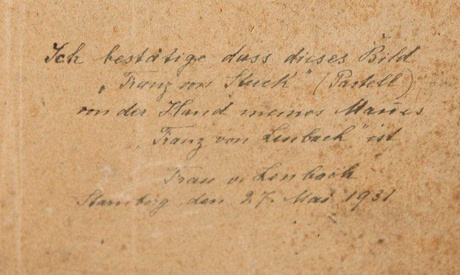 Ich bestätige dass dieses Bild
„Franz von Stuck" (Pastell)
von der Hand meines Mannes
„Franz von Lenbach" ist
Frau v. Lenbach
Starnberg den 27. Mai 1931